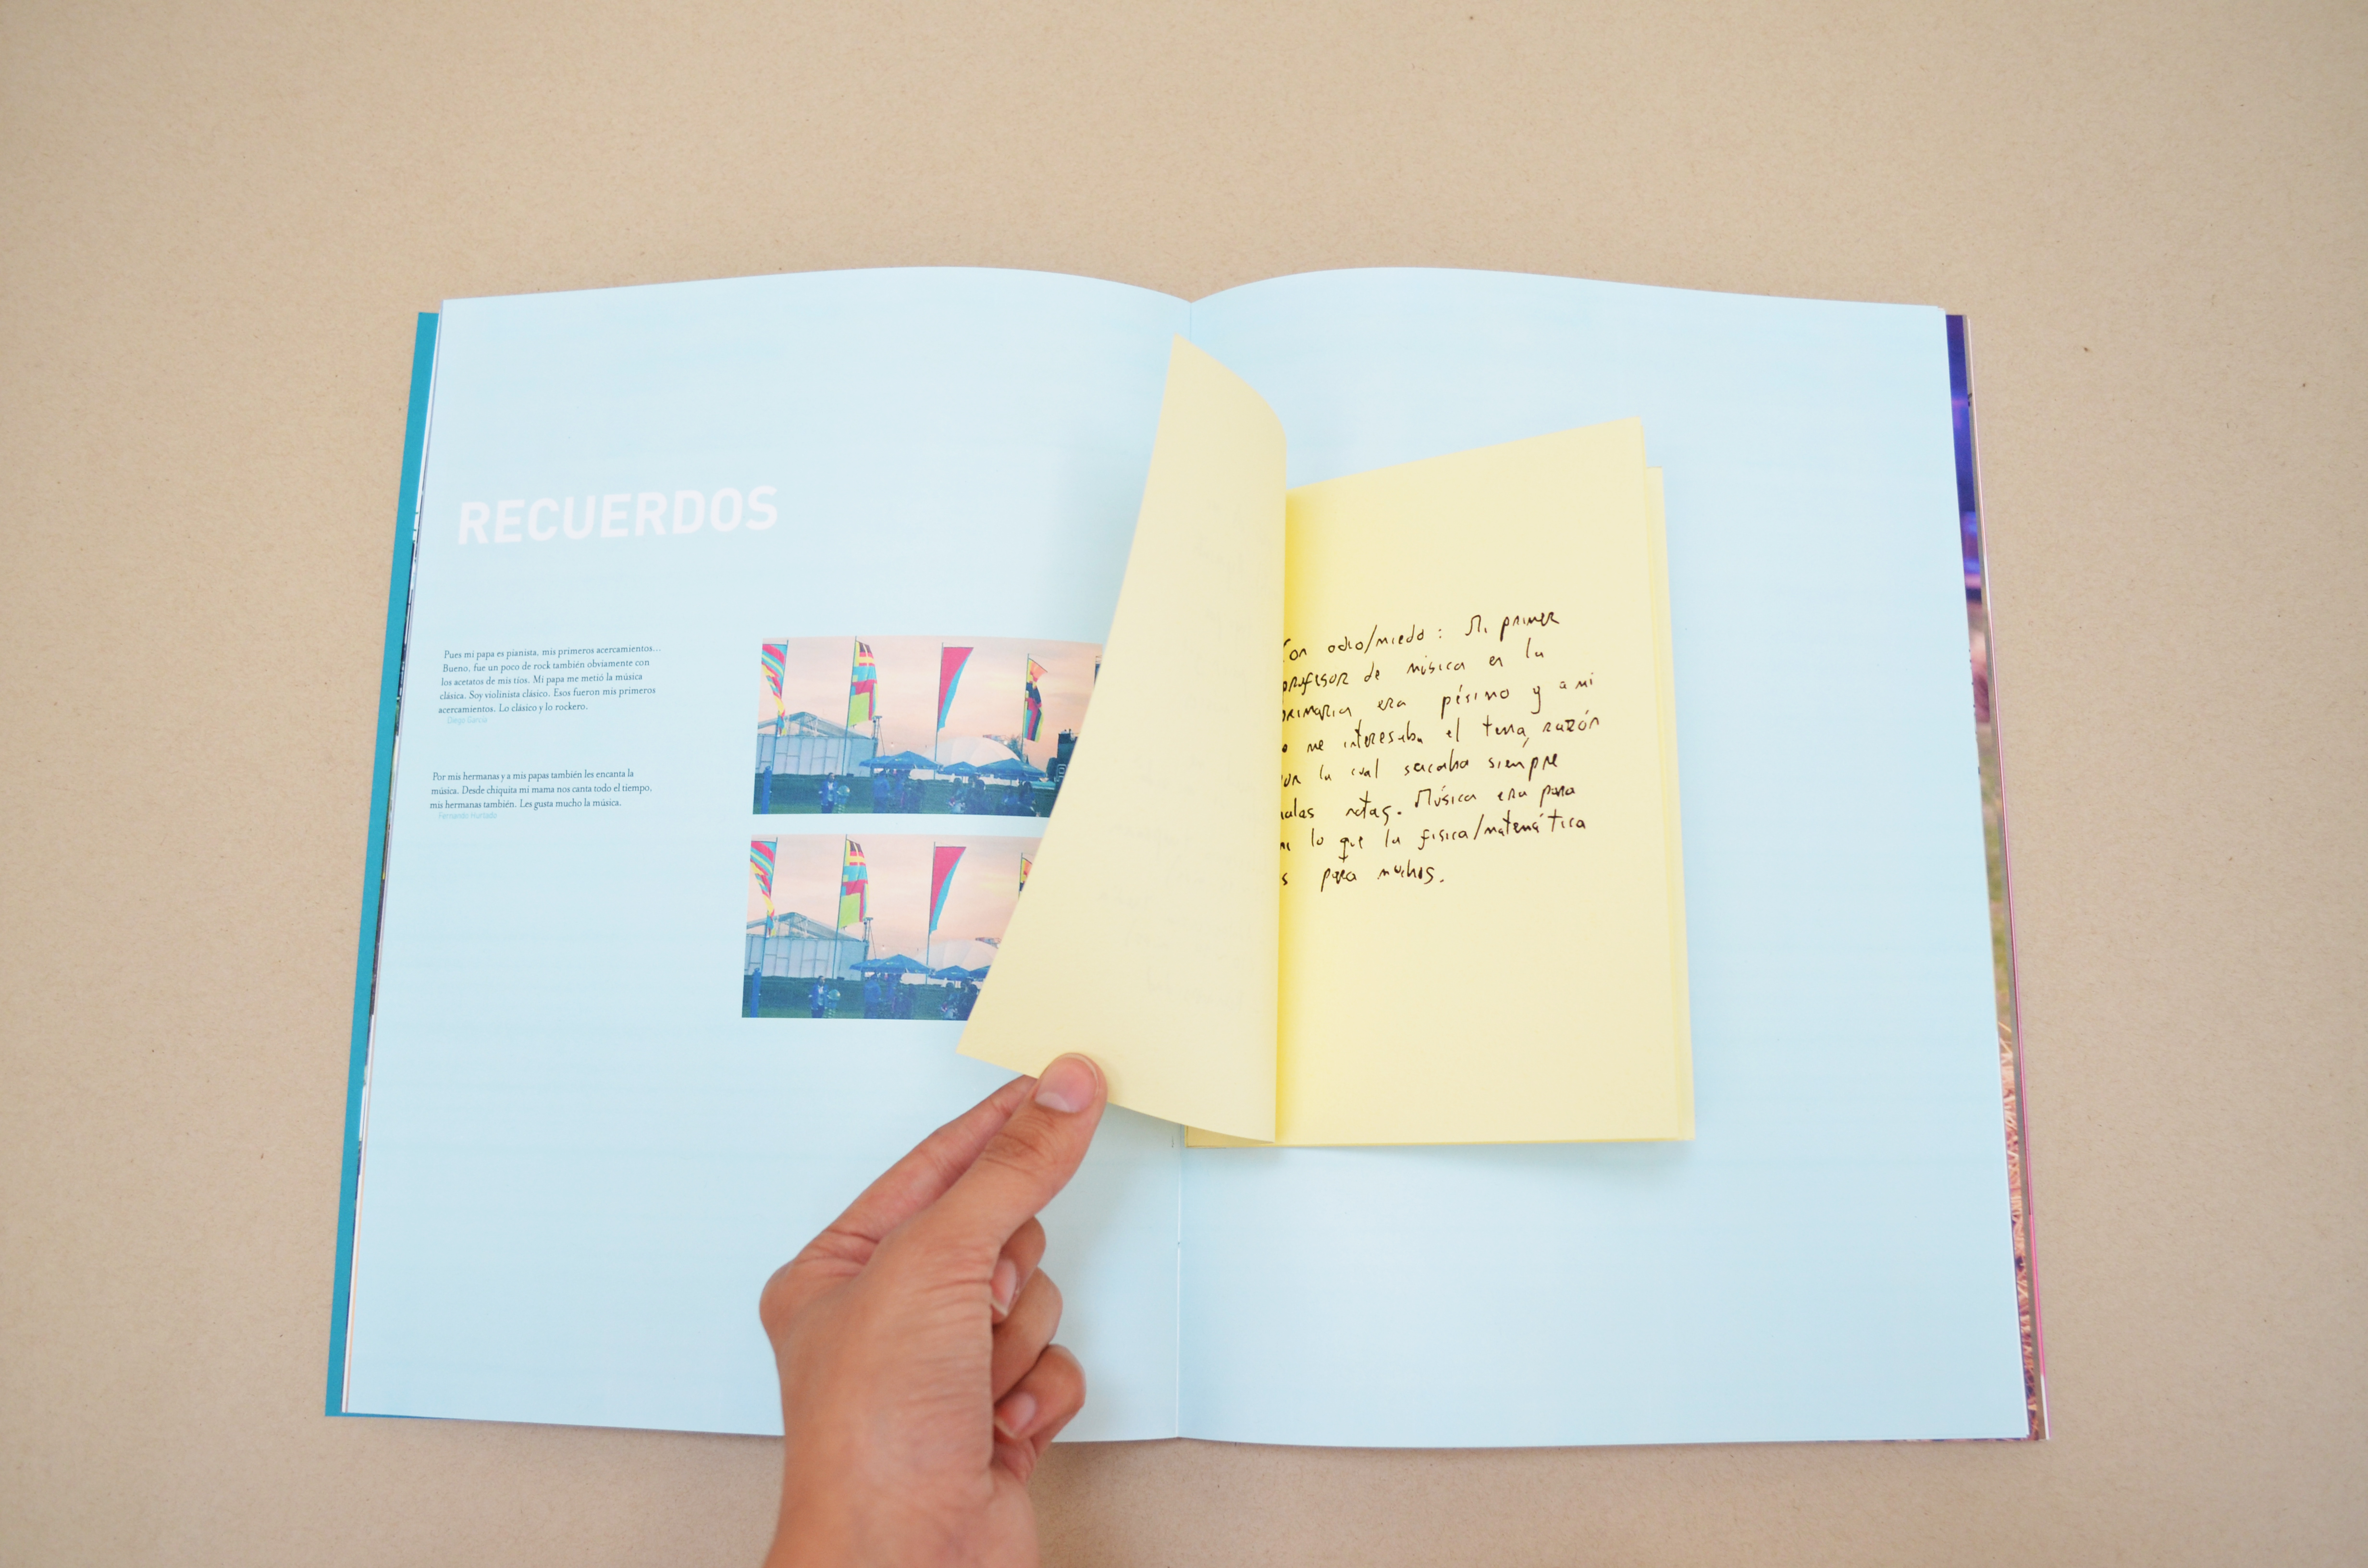 RECUERDOS
Pues mi papa es pianista, mis primeros acercamientos...
Bueno, fue un poco de rock también obviamente con
los acetatos de mis tíos. Mi papa me metió la música
clásica. Soy violinista clásico. Esos fueron mis primeros
acercamientos. Lo clásico y lo rockero.
Diego García
Por mis hermanas y a mis papas también les encanta la
música. Desde chiquita mi mama nos canta todo el tiempo,
mis hermanas también. Les gusta mucho la música.
Fernanda Hurtado
Con odio/miedo: Mi primer
profesor de música en la
primaria era pésimo y a mi
me interesaba el tema, razón
por la cual sacaba siempre
malas notas. Música era para
mi lo que la fisica/matemática
para muchos.